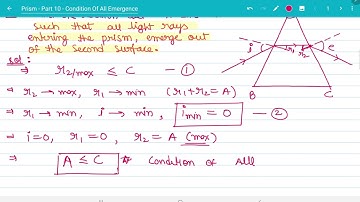 Prism - Part 10 - Condition Of All Emergence
such that all light rays
entering the prism, emerge out
of the second surface.
sol :
⇒ r₂/max ≤ C — ①
→ r₂ → max, r₁ → min (r₁+r₂ = A)
⇒ r₁ → min, i → min, i min = 0 — ②
→ i=0, r₁=0, r₂ = A (max)
⇒ A ≤ C * Condition of all
i r₁ r₂ e
B C